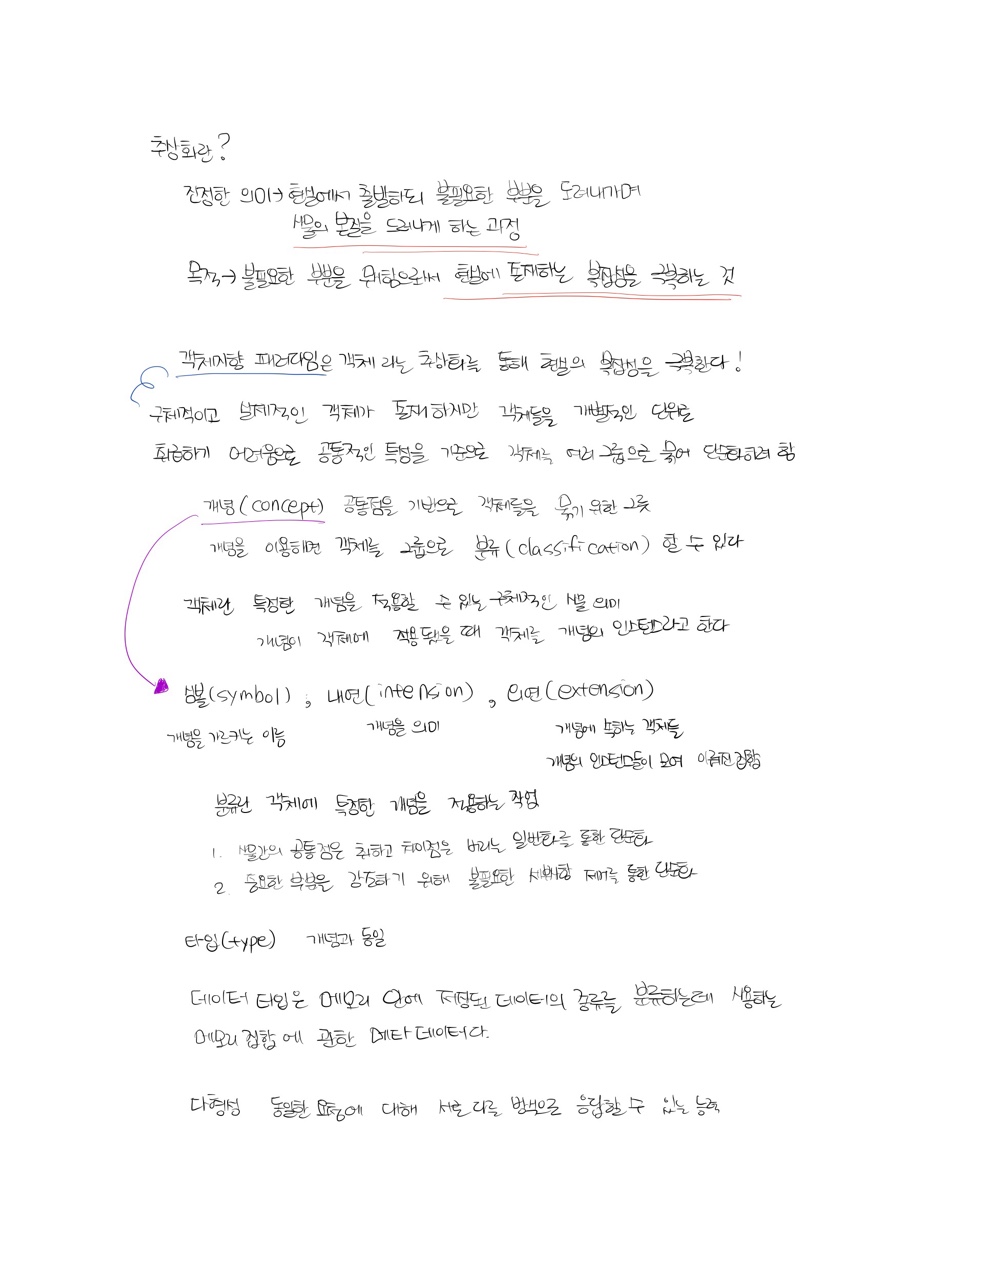 추상화란?
진정한 의미→ 현실에서 출발하되 불필요한 부분을 도려내가며
사물의 본질을 드러나게 하는 과정
목적→ 불필요한 부분을 무시함으로써 현실에 존재하는 복잡성을 극복하는 것
객체지향 패러다임은 객체 라는 추상화를 통해 현실의 복잡성을 극복한다!
구체적이고 실제적인 객체가 존재하지만 객체들을 개별적인 단위로
취급하기 어려움으로 공통적인 특성을 기준으로 객체를 여러 그룹으로 묶어 단순화하려 함
개념(concept) 공통점을 기반으로 객체들을 묶기 위한 그릇
개념을 이용하면 객체를 그룹으로 분류(classification) 할 수 있다
객체란 특정한 개념을 적용할 수 있는 구체적인 사물 의미
개념이 객체에 적용 됐을 때 객체를 개념의 인스턴스라고 한다
심볼(symbol), 내연(intension), 외연(extension)
개념을 가르키는 이름 개념을 의미 개념에 속하는 객체들
개념의 인스턴스들이 모여 이뤄진 집합
분류란 객체에 특정한 개념을 적용하는 작업
1. 사물간의 공통점은 취하고 차이점은 버리는 일반화를 통한 단순화
2. 중요한 부분을 강조하기 위해 불필요한 세부사항 제거를 통한 단순화
타입(type) 개념과 동일
데이터 타입은 메모리 안에 저장된 데이터의 종류를 분류하는데 사용하는
메모리 집합에 관한 메타 데이터다.
다형성 동일한 요청에 대해 서로 다른 방식으로 응답할 수 있는 능력